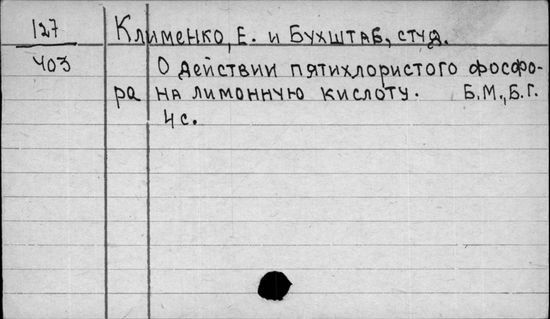 127 Клименко, Е. и Бухштаб, студ.
403 О действии пятихлористого фосфо-
ра на лимонную кислоту. Б.М., Б.Г.
4 с.